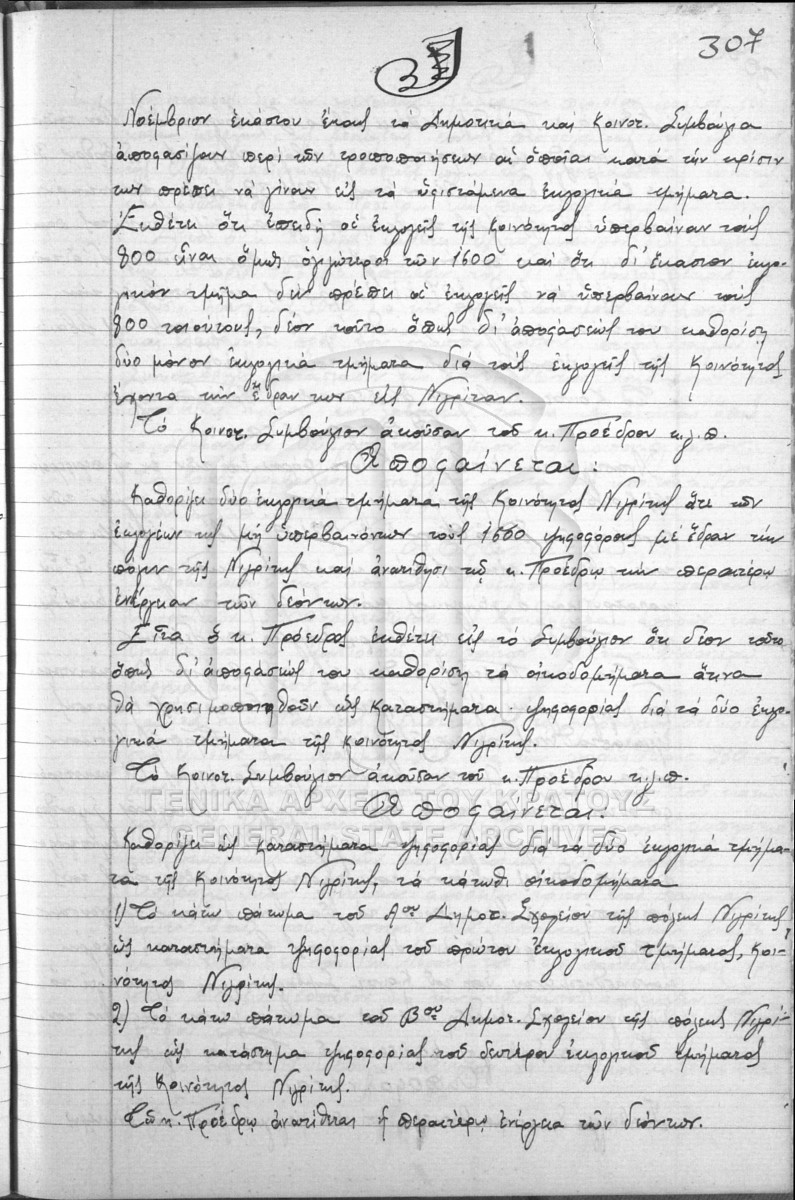 307
Νοέμβριον ἑκάστου ἔτους τά Δημοτικά καί Κοινοτ. Συμβούλια
ἀποφασίζουν περί τῶν τροποποιήσεων αἱ ὁποῖαι κατά τήν κρίσιν
των πρέπει νά γίνουν εἰς τά ὑφιστάμενα ἐκλογικά τμήματα.
Ἐκθέτει ὅτι ἐπειδή οἱ ἐκλογεῖς τῆς Κοινότητος ὑπερβαίνουν τούς
800 εἶναι ὅμως ὀλιγώτεροι τῶν 1600 καί ὅτι δι' ἕκαστον ἐκλο-
γικόν τμῆμα δέν πρέπει οἱ ἐκλογεῖς νά ὑπερβαίνουν τούς
800 τοιούτους, δέον τοῦτο ὅπως δι' ἀποφάσεώς του καθορίσῃ
δύο μόνον ἐκλογικά τμήματα διά τούς ἐκλογεῖς τῆς Κοινότητος
ἔχοντα τήν ἕδραν των εἰς Νιγρίταν.
Τό Κοινοτ. Συμβούλιον ἀκοῦσαν τοῦ κ. Προέδρου κ.λ.π.
Ἀποφαίνεται:
Καθορίζει δύο ἐκλογικά τμήματα τῆς Κοινότητος Νιγρίτης ἅτε τῶν
ἐκλογέων της μή ὑπερβαινόντων τούς 1600 ψηφοφόρους μέ ἕδραν τήν
πόλιν τῆς Νιγρίτης καί ἀνατίθησι τῷ κ. Προέδρῳ τήν περαιτέρω
ἐνέργειαν τῶν δεόντων.
Εἶτα ὁ κ. Πρόεδρος ἐκθέτει εἰς τό Συμβούλιον ὅτι δέον τοῦτο
ὅπως δι' ἀποφάσεώς του καθορίσῃ τά οἰκοδομήματα ἅτινα
θά χρησιμοποιηθοῦν ὡς καταστήματα ψηφοφορίας διά τά δύο ἐκλο-
γικά τμήματα τῆς Κοινότητος Νιγρίτης.
Τό Κοινοτ. Συμβούλιον ἀκοῦσαν τοῦ κ. Προέδρου κ.λ.π.
ΓΕΝΙΚΑ ΑΡΧΕΙΑ ΤΟΥ ΚΡΑΤΟΥΣ
Ἀποφαίνεται:
GENERAL STATE ARCHIVES
Καθορίζει ὡς καταστήματα ψηφοφορίας διά τά δύο ἐκλογικά τμήμα-
τα τῆς Κοινότητος Νιγρίτης, τά κάτωθι οἰκοδομήματα
1) Τό κάτω πάτωμα τοῦ Αου Δημοτ. Σχολείου τῆς πόλεως Νιγρίτης
ὡς καταστήματα ψηφοφορίας τοῦ πρώτου ἐκλογικοῦ τμήματος, Κοι-
νότητος Νιγρίτης.
2) Τό κάτω πάτωμα τοῦ Βου Δημοτ. Σχολείου τῆς πόλεως Νιγρί-
της ὡς κατάστημα ψηφοφορίας τοῦ δευτέρου ἐκλογικοῦ τμήματος
τῆς Κοινότητος Νιγρίτης.
Τῷ κ. Προέδρῳ ἀνατίθεται ἡ περαιτέρω ἐνέργεια τῶν δεόντων.